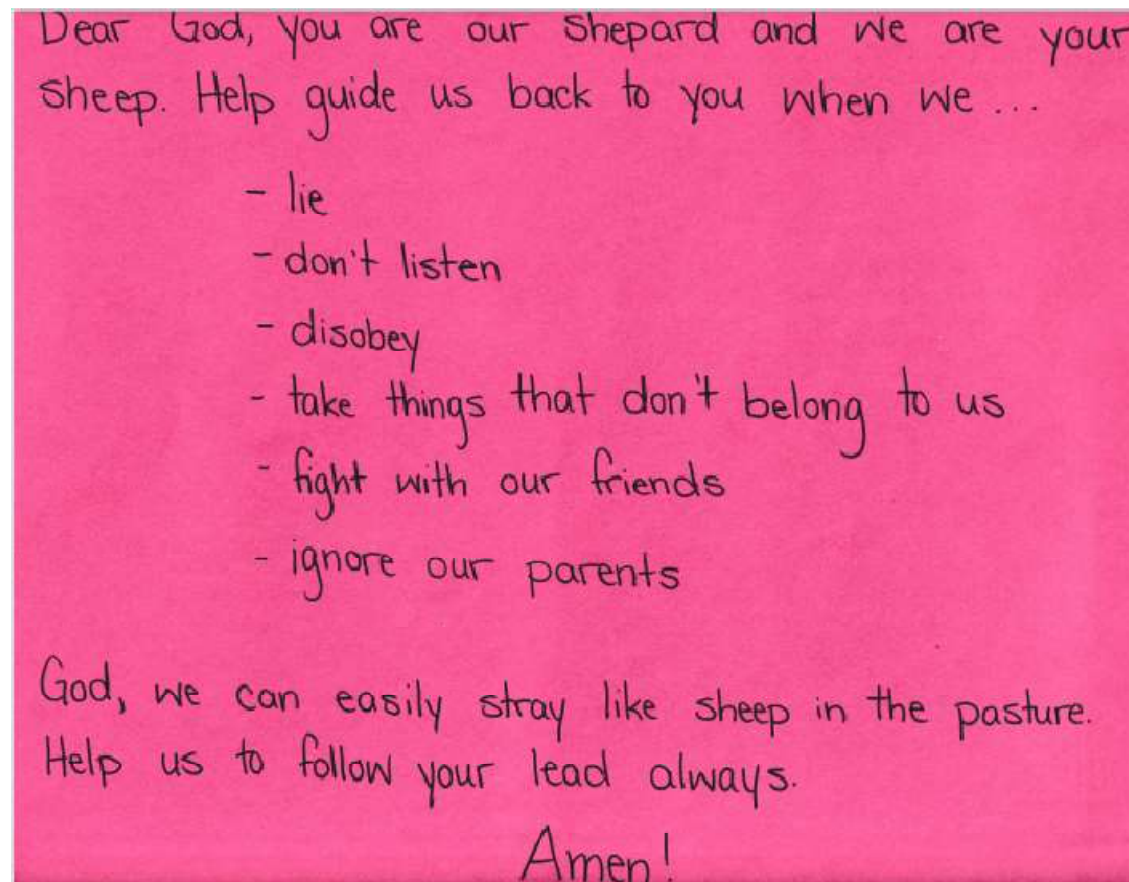 Dear God, you are our Shepard and we are your
sheep. Help guide us back to you when we ...
- lie
- don't listen
- disobey
- take things that don't belong to us
- fight with our friends
- ignore our parents
God, we can easily stray like sheep in the pasture.
Help us to follow your lead always.
Amen!